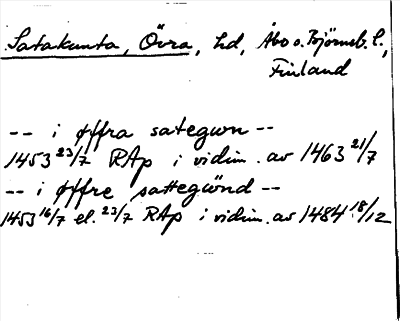 Satakunta, Övra, hd, Åbo o. Björneb. l.,
Finland
-- i øffra sategwn --
1453 23/7 RAp i vidim. av 1463 21/7
-- i øffre sattegwnd --
1453 16/7 el. 23/7 RAp i vidim. av 1484 18/12